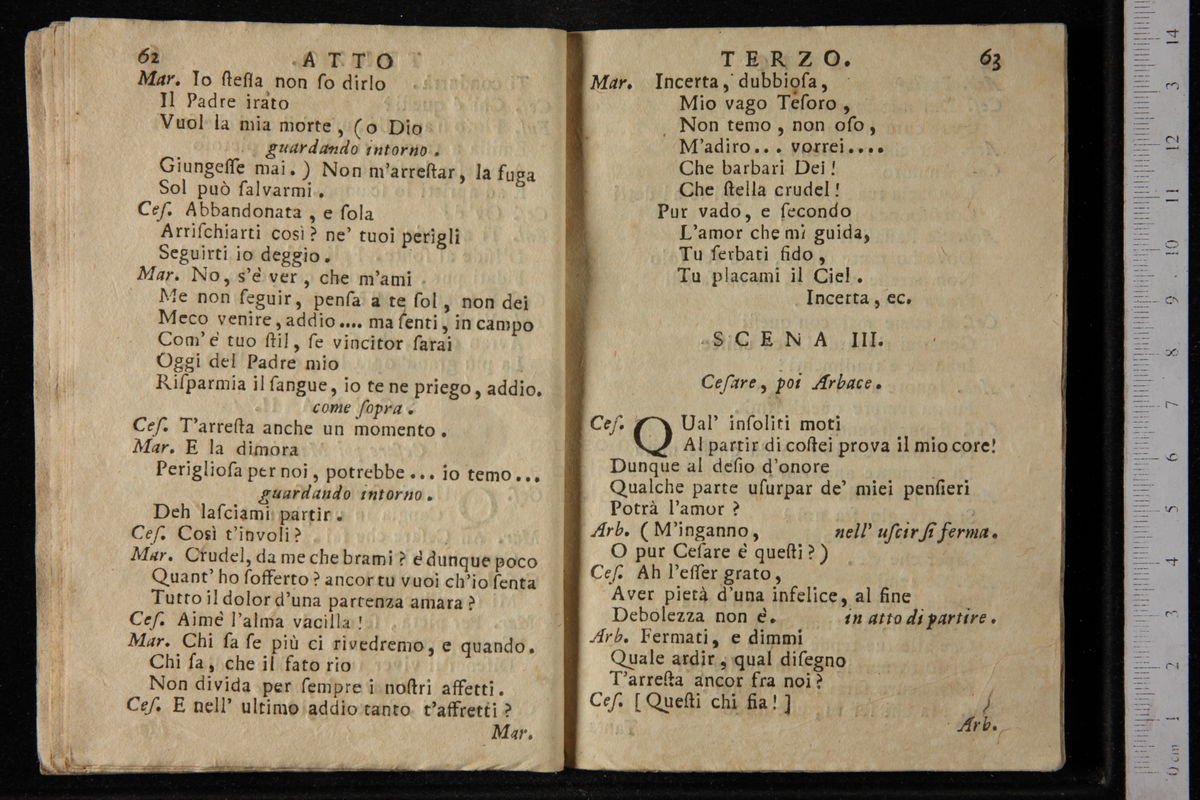 62 ATTO
Mar. Io ſteſſa non ſo dirlo
Il Padre irato
Vuol la mia morte, (o Dio
guardando intorno.
Giungeſſe mai.) Non m'arreſtar, la fuga
Sol può ſalvarmi.
Ceſ. Abbandonata, e ſola
Arriſchiarti così? ne' tuoi perigli
Seguirti io deggio.
Mar. No, s'è ver, che m'ami
Me non ſeguir, penſa a te ſol, non dei
Meco venire, addio.... ma ſenti, in campo
Com' è tuo ſtil, ſe vincitor ſarai
Oggi del Padre mio
Riſparmia il ſangue, io te ne priego, addio.
come ſopra.
Ceſ. T'arreſta anche un momento.
Mar. E la dimora
Periglioſa per noi, potrebbe... io temo...
guardando intorno.
Deh laſciami partir.
Ceſ. Così t'involi?
Mar. Crudel, da me che brami? è dunque poco
Quant' ho ſofferto? ancor tu vuoi ch'io ſenta
Tutto il dolor d'una partenza amara?
Ceſ. Aimè l'alma vacilla!
Mar. Chi ſa ſe più ci rivedremo, e quando.
Chi ſa, che il fato rio
Non divida per ſempre i noſtri affetti.
Ceſ. E nell' ultimo addio tanto t'affretti?
Mar.
TERZO. 63
Mar. Incerta, dubbioſa,
Mio vago Teſoro,
Non temo, non oſo,
M'adiro... vorrei....
Che barbari Dei!
Che ſtella crudel!
Pur vado, e ſecondo
L'amor che mi guida,
Tu ſerbati fido,
Tu placami il Ciel.
Incerta, ec.
SCENA III.
Ceſare, poi Arbace.
Ceſ. QUal' inſoliti moti
Al partir di coſtei prova il mio core!
Dunque al deſio d'onore
Qualche parte uſurpar de' miei penſieri
Potrà l'amor?
Arb. (M'inganno, nell' uſcir ſi ferma.
O pur Ceſare è queſti?)
Ceſ. Ah l'eſſer grato,
Aver pietà d'una infelice, al fine
Debolezza non è. in atto di partire.
Arb. Fermati, e dimmi
Quale ardir, qual diſegno
T'arreſta ancor fra noi?
Ceſ. [Queſti chi fia!]
Arb.
14
13
12
11
10
9
8
7
6
5
4
3
2
1
0 cm